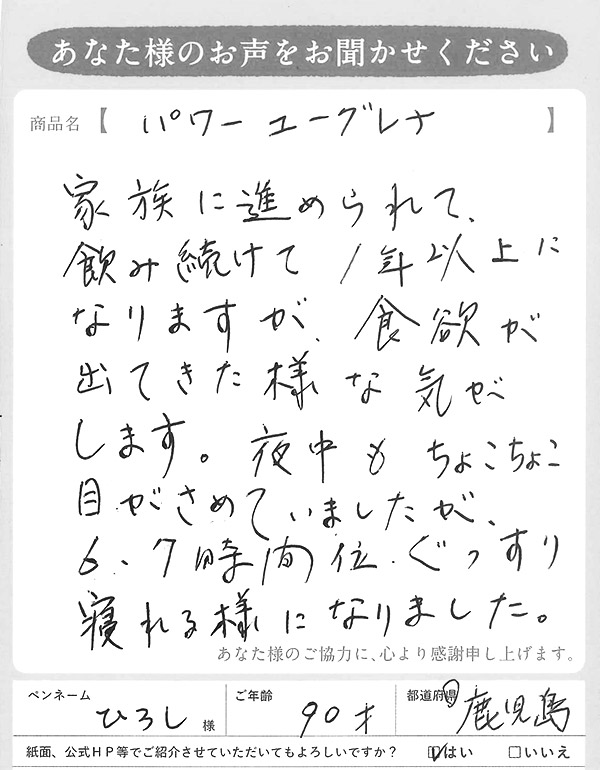 あなた様のお声をお聞かせください
商品名【 パワーユーグレナ 】
家族に進められて、
飲み続けて1年以上に
なりますが、食欲が
出てきた様な気が
します。夜中もちょこちょこ
目がさめていましたが、
6、7時間位ぐっすり
寝れる様になりました。
あなた様のご協力に、心より感謝申し上げます。
ペンネーム ひろし 様 ご年齢 90才 都道府県 鹿児島
紙面、公式HP等でご紹介させていただいてもよろしいですか? ☑はい □いいえ